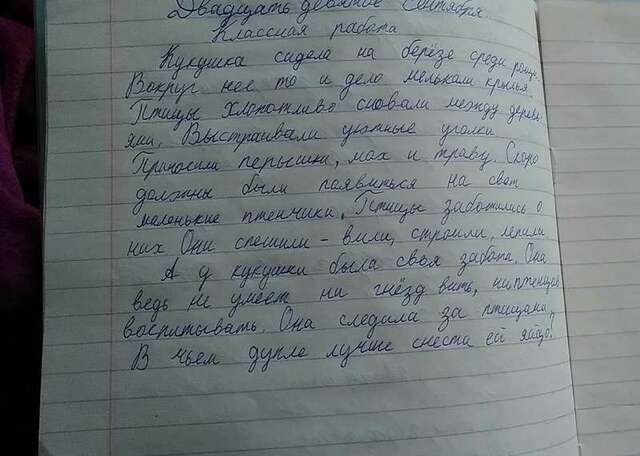 Двадцать девятое сентября.
Классная работа
Кукушка сидела на берёзе среди рощи.
Вокруг нее то и дело мелькали крылья.
Птицы хлопотливо сновали между деревь-
ями. Выстраивали уютные уголки
Приносили перышки, мах и траву. Скоро
должны были появиться на свет
маленькие птенчики. Птицы заботились о
них Они спешили – вили, строили, лепили
А у кукушки была своя забота. Она
ведь не умеет ни гнёзд вить, ни птенцов
воспитывать. Она следила за птицами
В чьем дупле лучше снести ей яйцо?